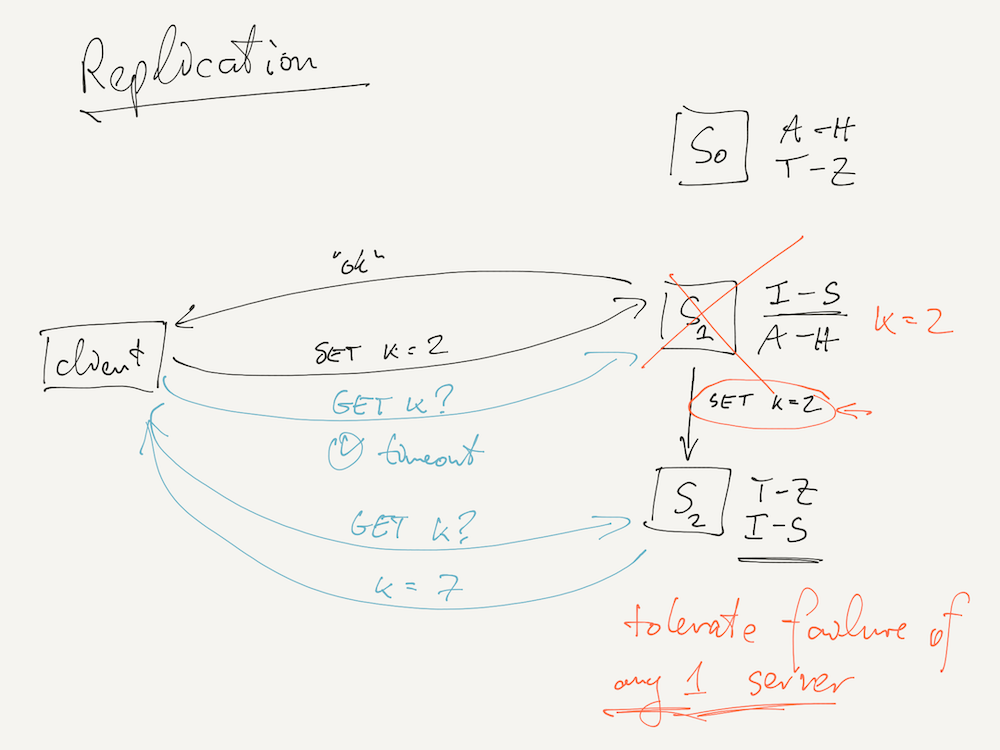 Replication
So
A-H
T-Z
"ok"
client
SET K=2
S1
I-S
A-H
K=2
GET K?
timeout
SET K=2
S2
T-Z
I-S
GET K?
K=7
tolerate failure of
any 1 server